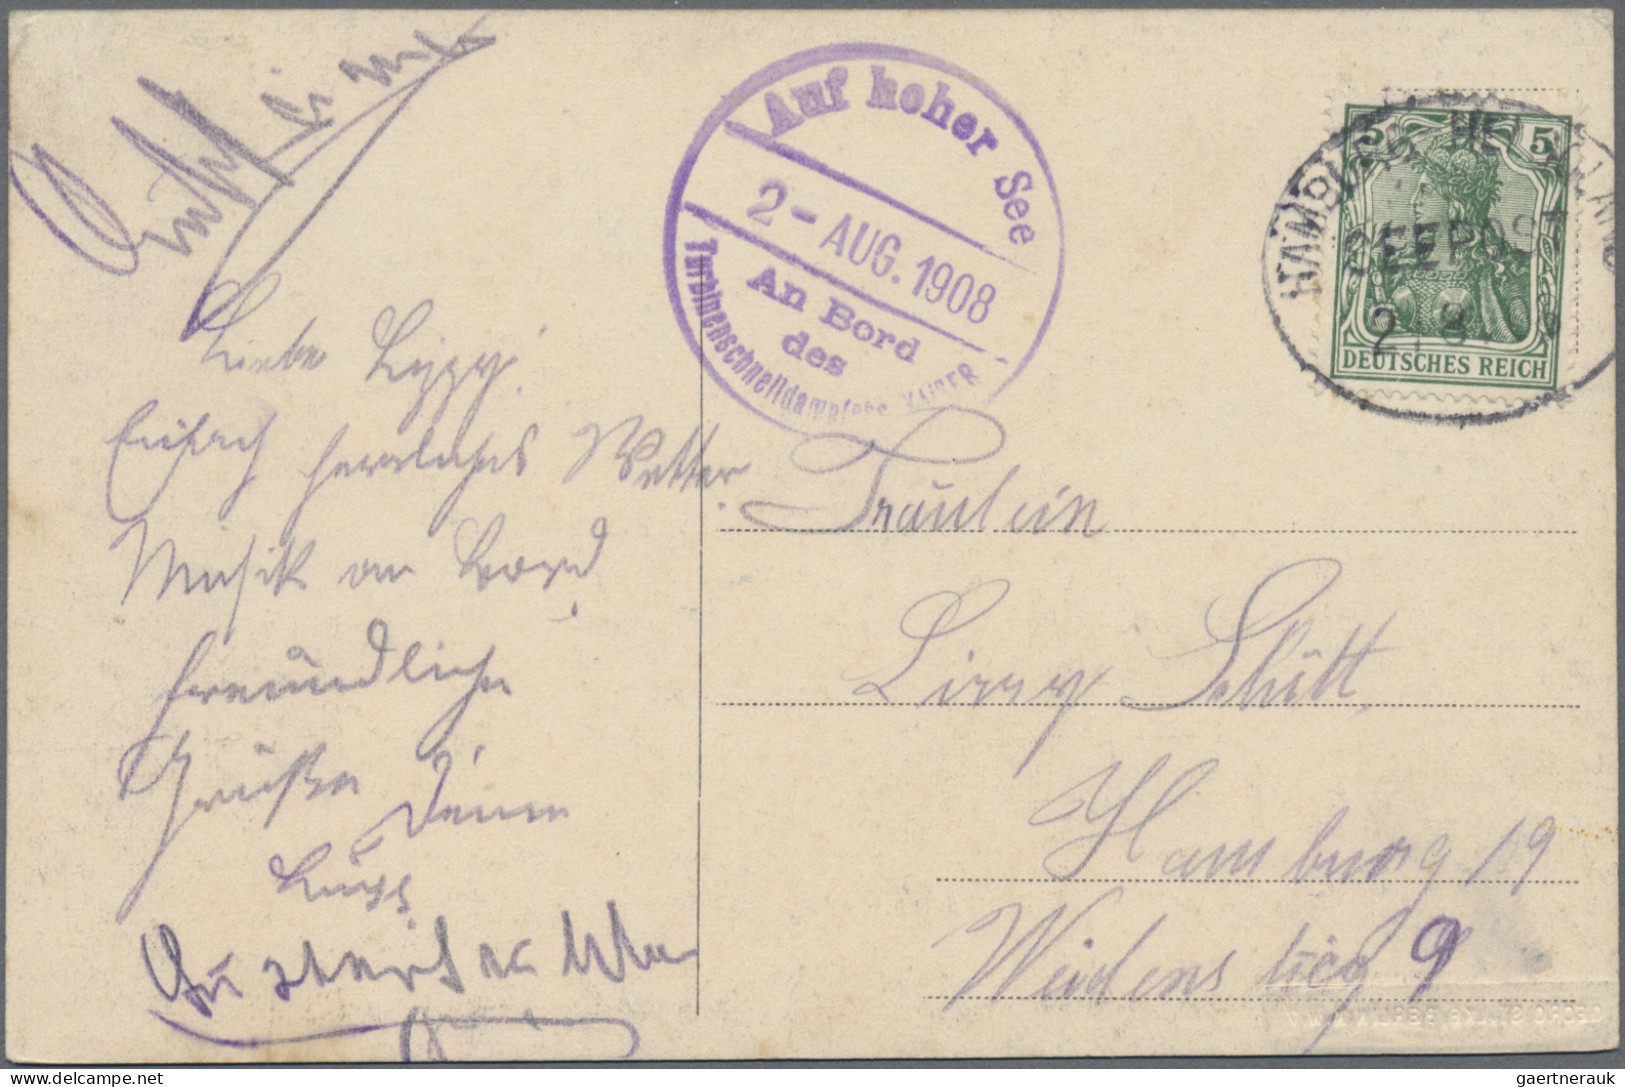 Auf hoher See
2 - AUG. 1908
An Bord
des
Turbinenschnelldampfers KAISER
5 5
DEUTSCHES REICH
HAMBURG HELGOLAND
SEEPOST
2. 8.
Liebe Lizzy!
Einfach herrliches Wetter.
Musik an Bord
freundliche
Grüße
Deine
Fräulein
Lizzy Schütt,
Hamburg 19
9
gaertnerauk